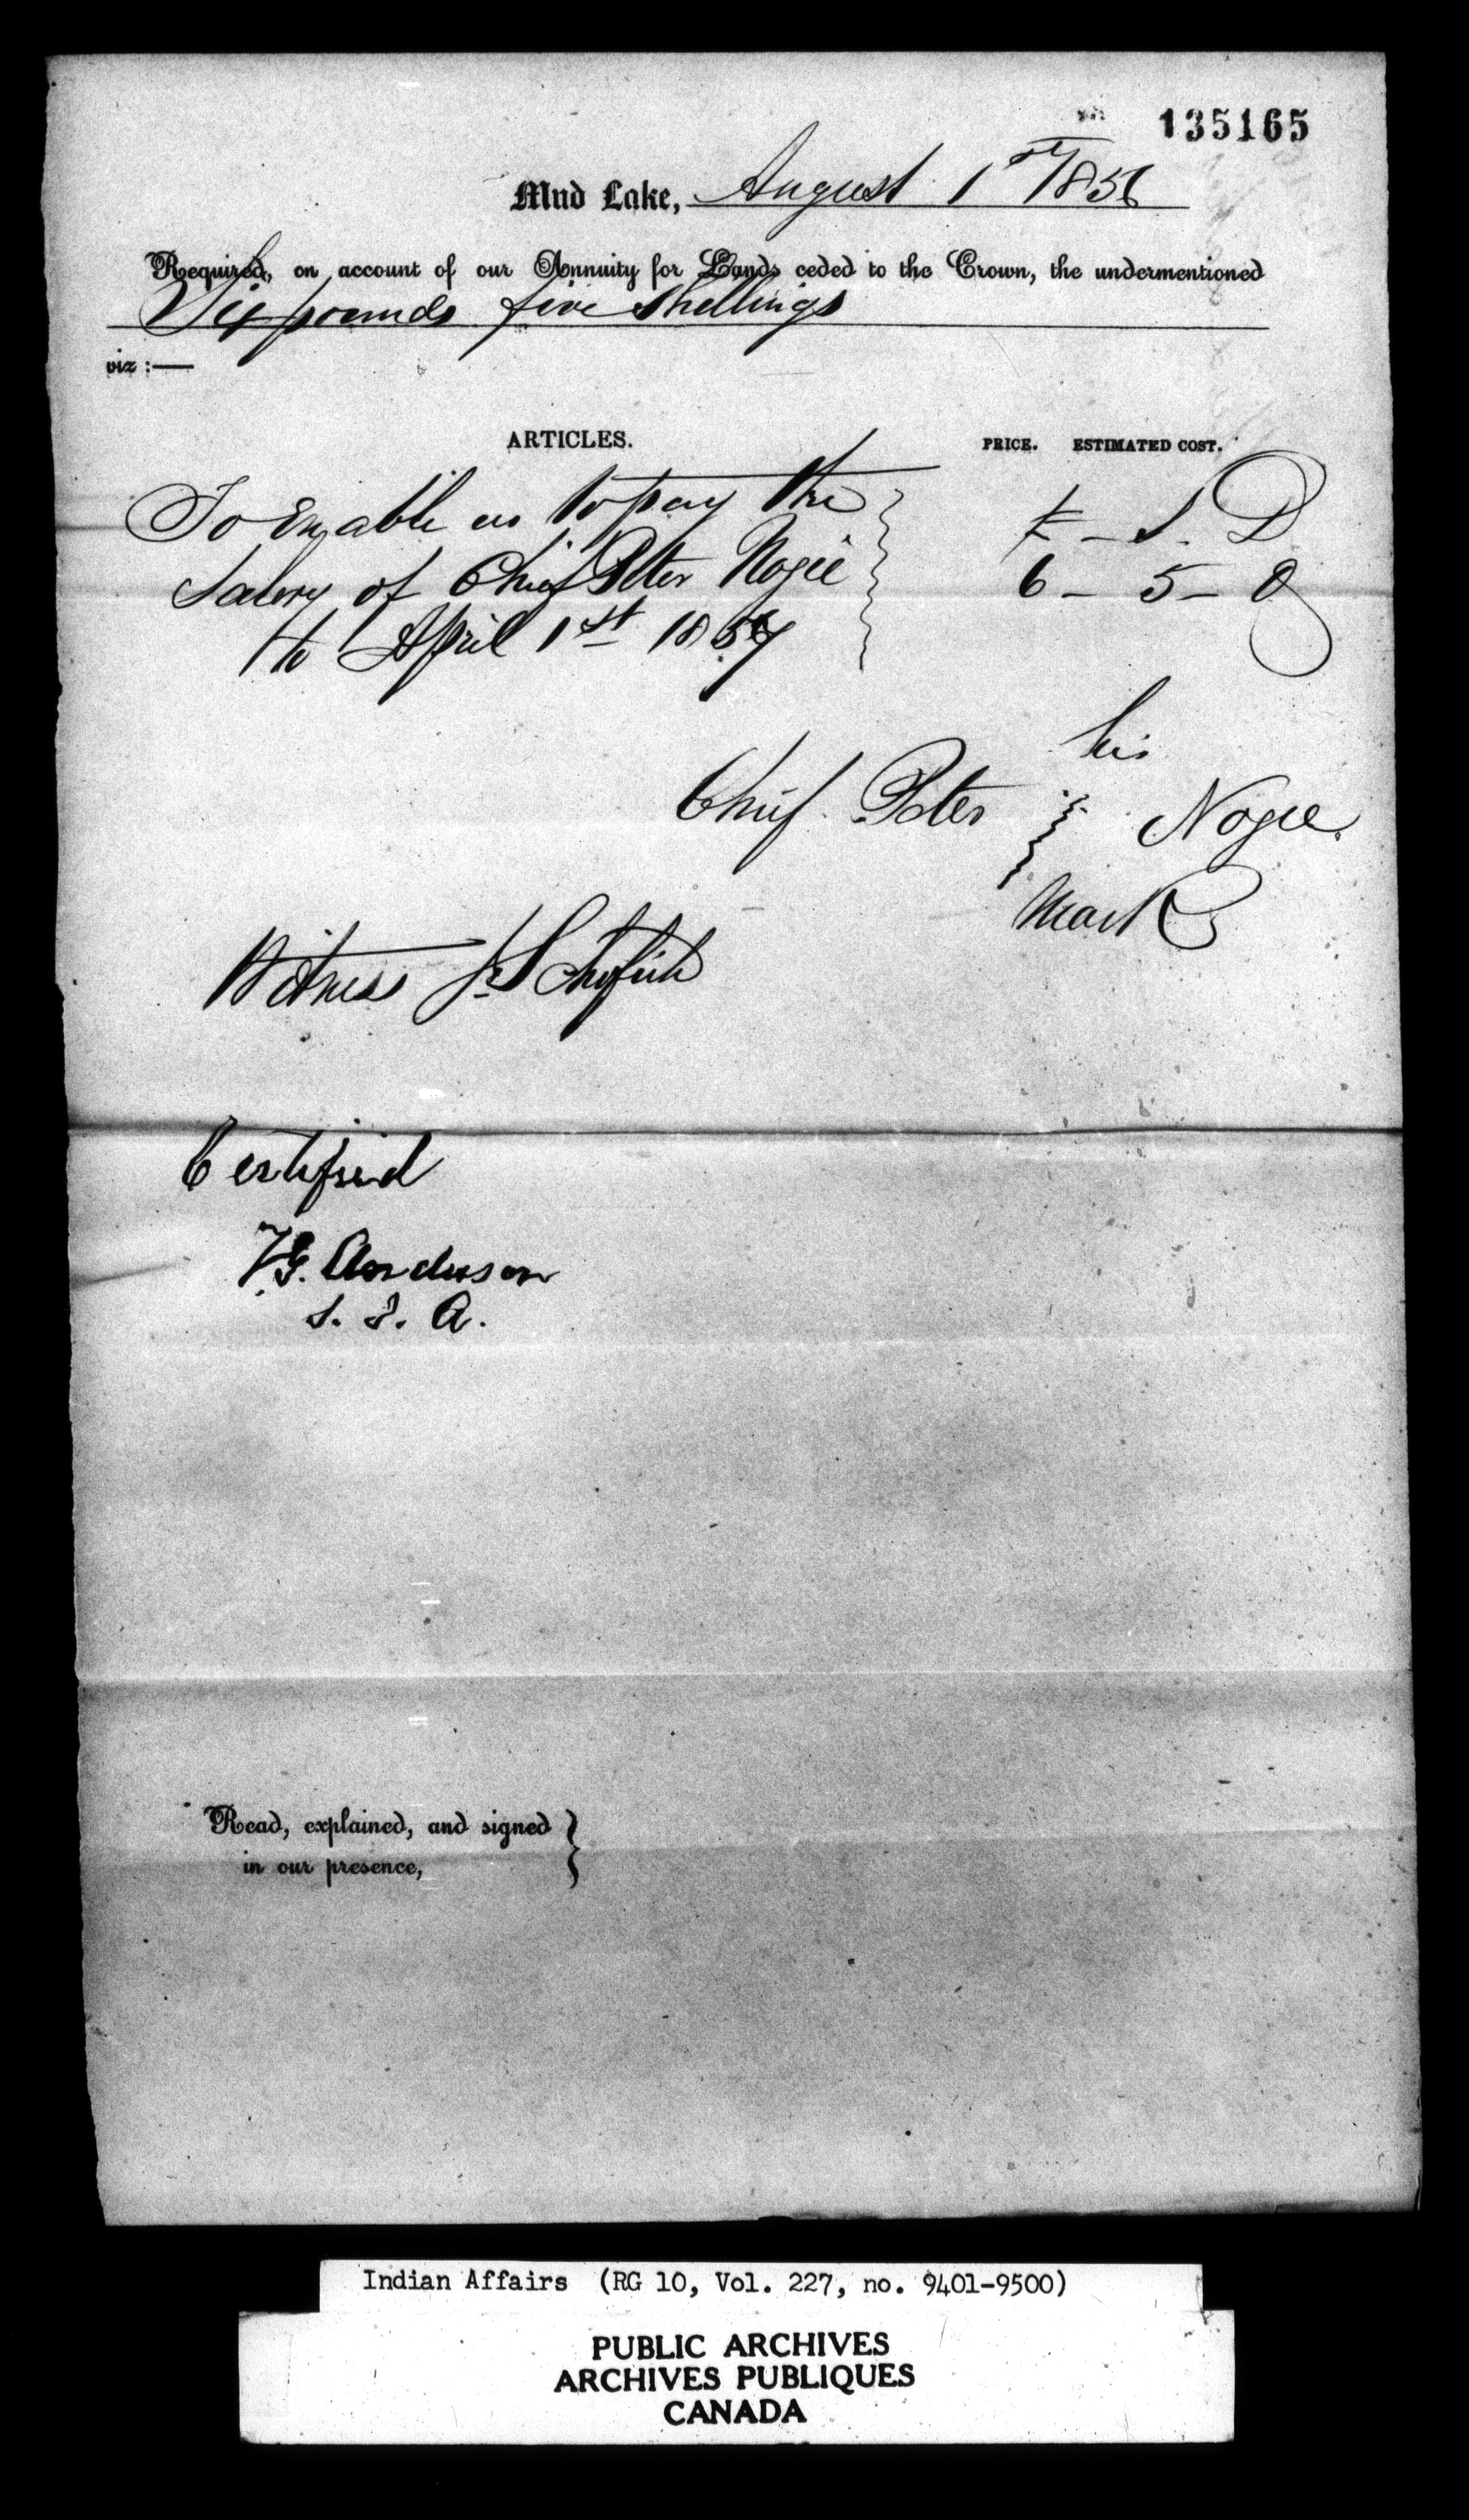 135165
Mud Lake, August 1st 1856
Required, on account of our Annuity for Lands ceded to the Crown, the undermentioned
Six pounds five shillings
viz :—
ARTICLES. PRICE. ESTIMATED COST.
To Enable us to pay the £ - S. D
Salery of Chief Peter Nogie 6 - 5 - 0
to April 1st 1857
his
Chief Peter Nogee.
Mark
Witness
Certified
T.G. Anderson
S. I. A.
Read, explained, and signed }
in our presence,
Indian Affairs (RG 10, Vol. 227, no. 9401-9500)
PUBLIC ARCHIVES
ARCHIVES PUBLIQUES
CANADA